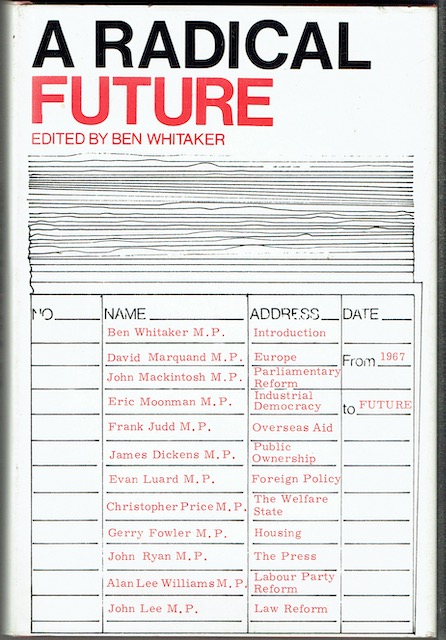 A RADICAL
FUTURE
EDITED BY BEN WHITAKER
NO NAME ADDRESS DATE
Ben Whitaker M.P. Introduction
David Marquand M.P. Europe From 1967
John Mackintosh M.P. Parliamentary
Reform
Eric Moonman M.P. Industrial
Democracy to FUTURE
Frank Judd M.P. Overseas Aid
James Dickens M.P. Public
Ownership
Evan Luard M.P. Foreign Policy
Christopher Price M.P. The Welfare
State
Gerry Fowler M.P. Housing
John Ryan M.P. The Press
Alan Lee Williams M.P. Labour Party
Reform
John Lee M.P. Law Reform